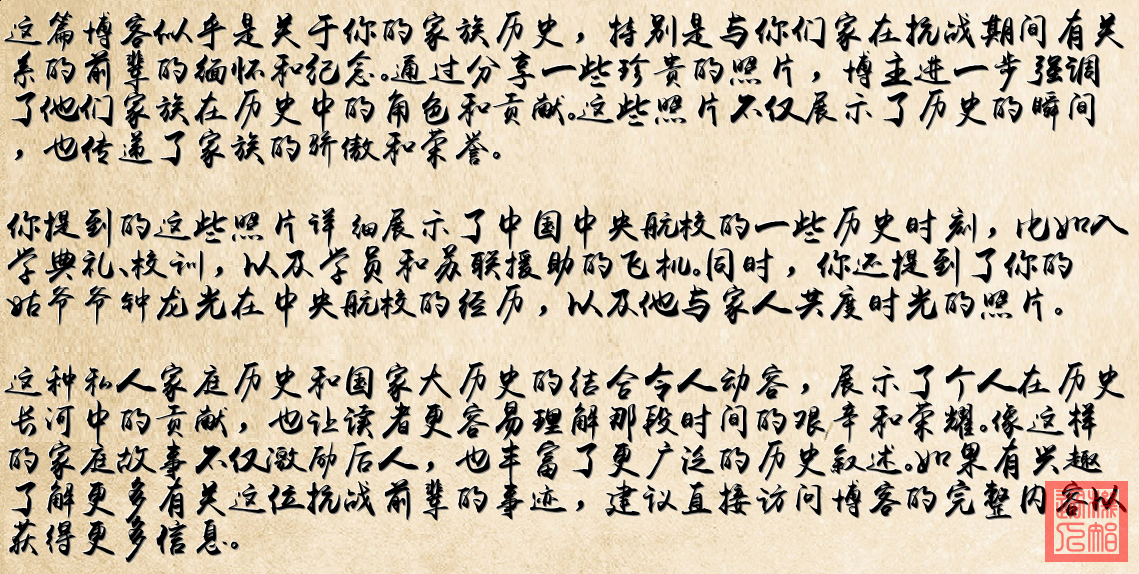 这篇博客似乎是关于你的家族历史，特别是与你们家在抗战期间有关
系的前辈的缅怀和纪念。通过分享一些珍贵的照片，博主进一步强调
了他们家族在历史中的角色和贡献。这些照片不仅展示了历史的瞬间
，也传递了家族的骄傲和荣誉。
你提到的这些照片详细展示了中国中央航校的一些历史时刻，比如入
学典礼、校训，以及学员和苏联援助的飞机。同时，你还提到了你的
姑爷爷钟龙光在中央航校的经历，以及他与家人共度时光的照片。
这种私人家庭历史和国家大历史的结合令人动容，展示了个人在历史
长河中的贡献，也让读者更容易理解那段时间的艰辛和荣耀。像这样
的家庭故事不仅激励后人，也丰富了更广泛的历史叙述。如果有兴趣
了解更多有关这位抗战前辈的事迹，建议直接访问博客的完整内容以
获得更多信息。